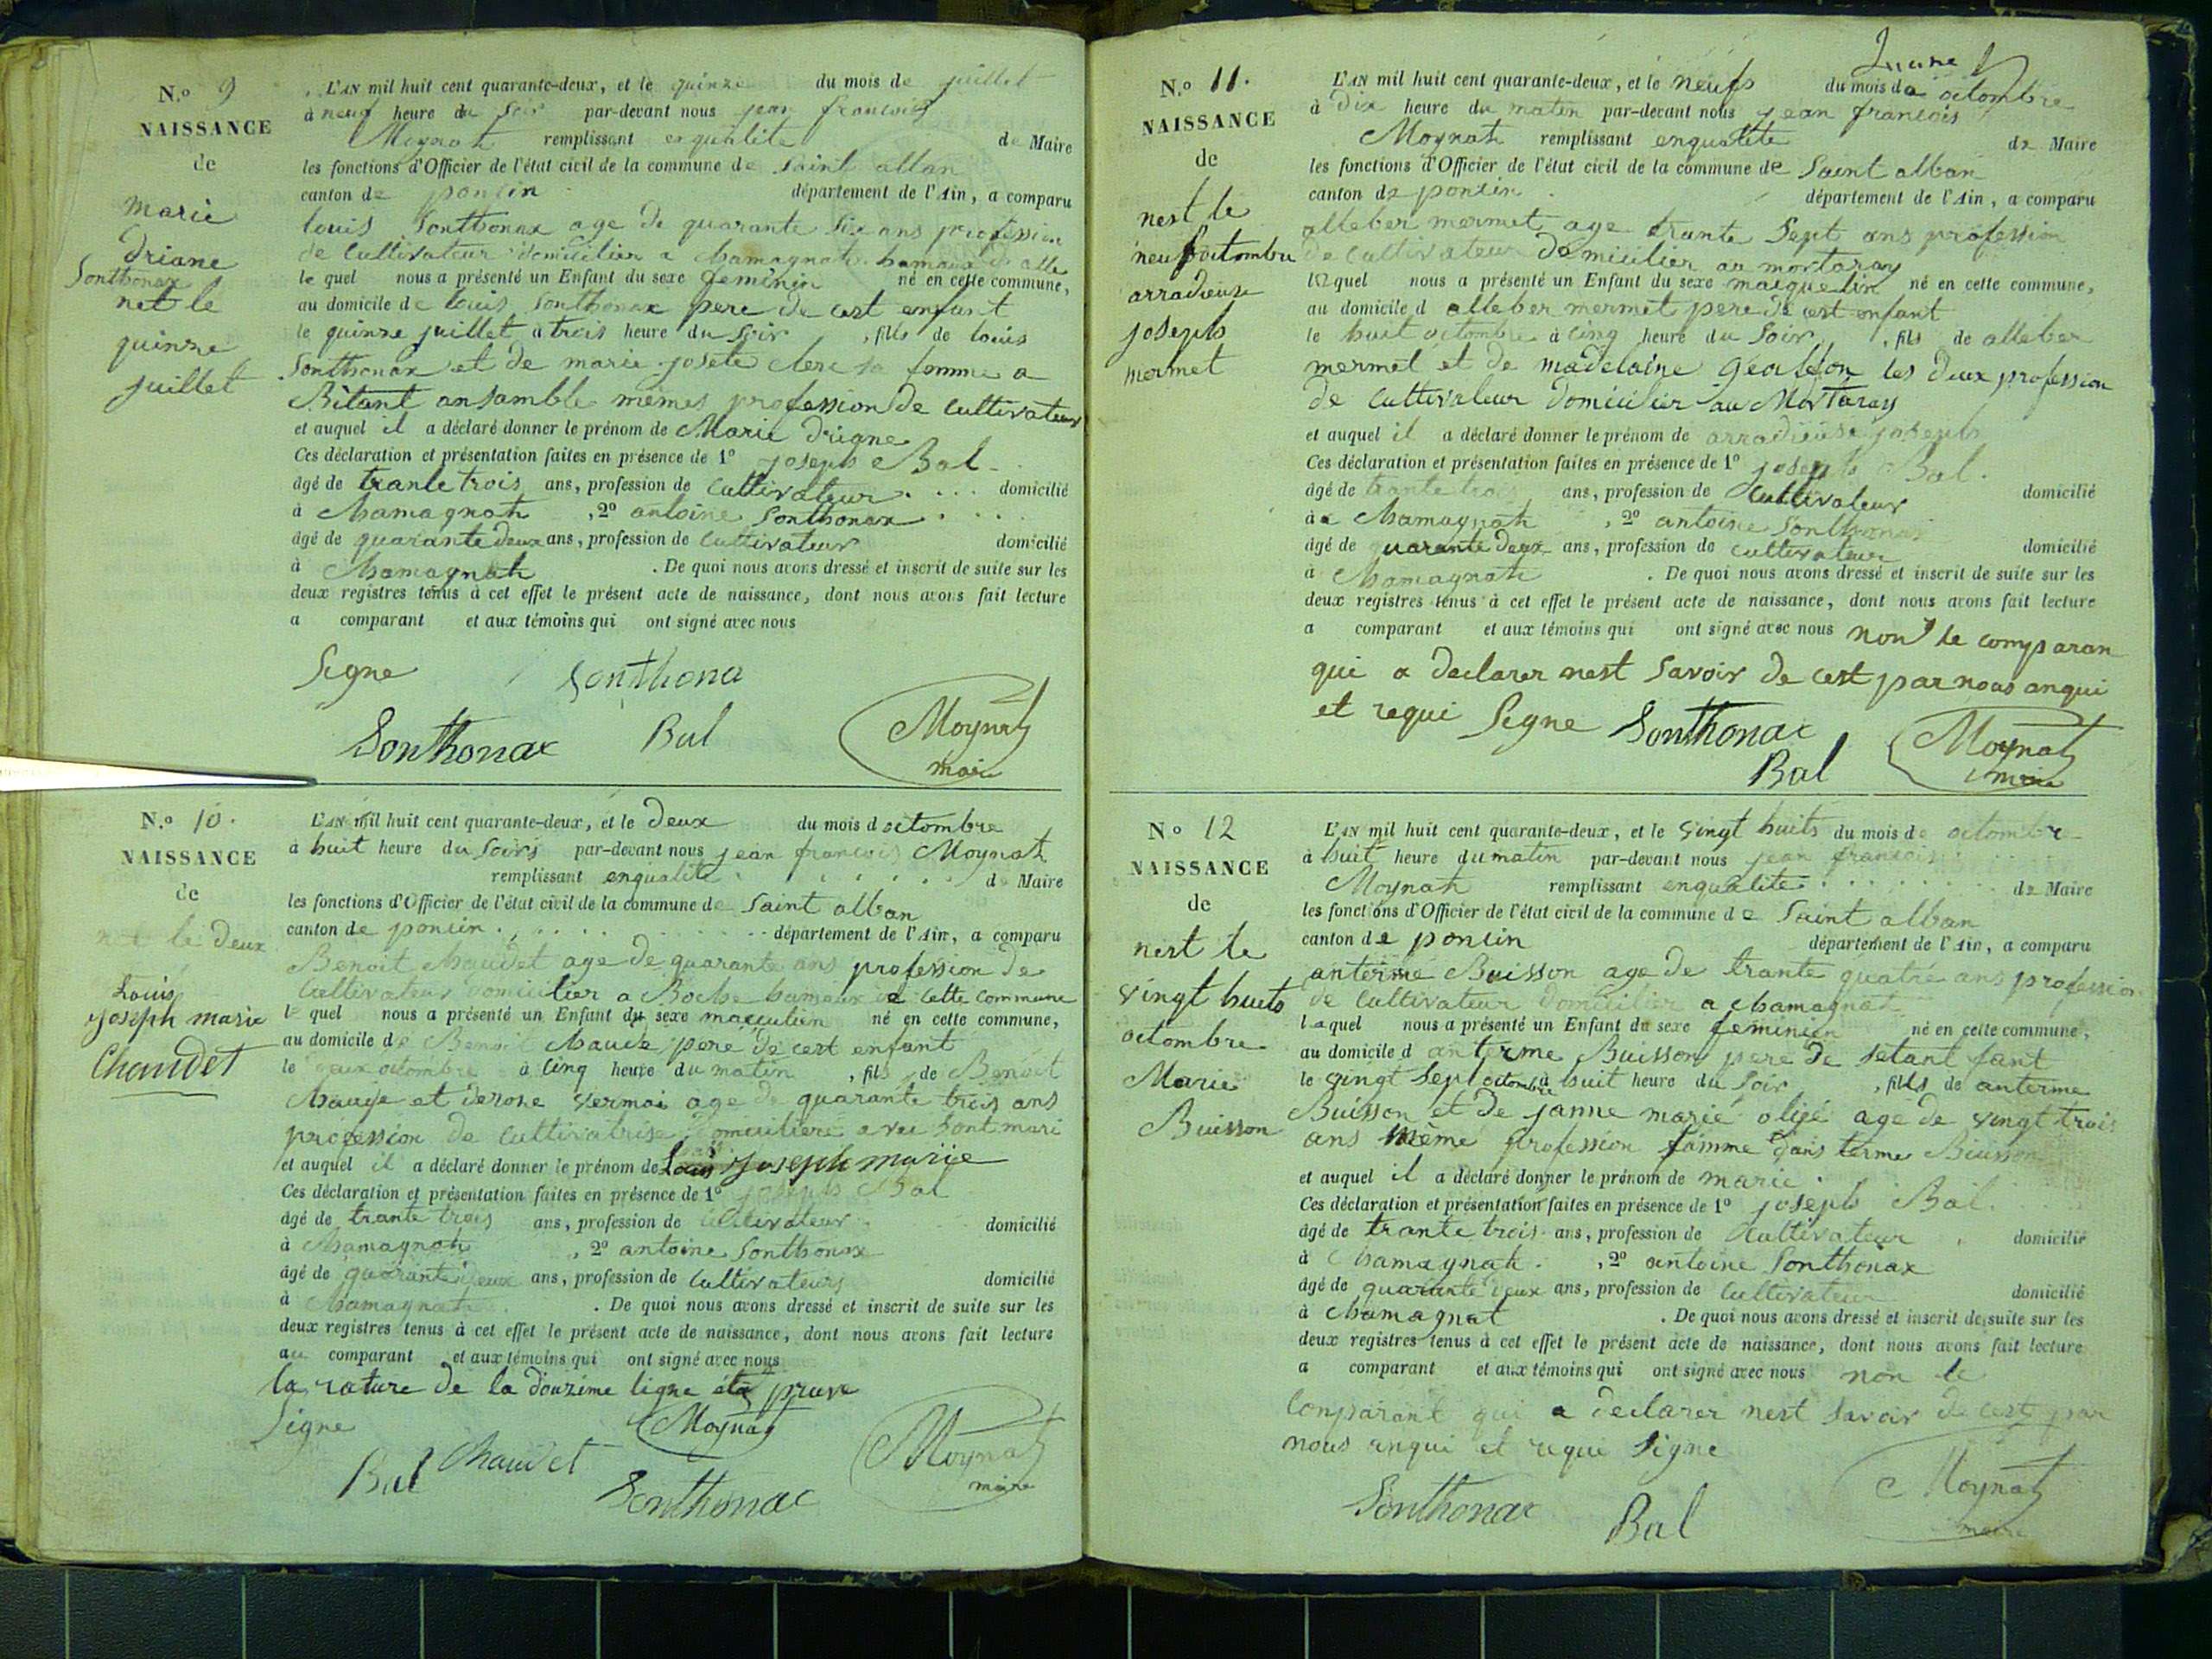 N.o 9
NAISSANCE
de
marie
driane
Sonthonax
net le
quinze
juillet
L'AN mil huit cent quarante-deux, et le quinze du mois de juillet
à neuf heure du soir par-devant nous jean francois
Moynat remplissant enqualite de Maire
les fonctions d'Officier de l'état civil de la commune de saint alban
canton de poncin département de l'Ain, a comparu
louis Sonthonax age de quarante six ans profession
de cultivateur domicilier a chamagnat hamaux de
le quel nous a présenté un Enfant du sexe feminin né en cette commune,
au domicile de louis Sonthonax pere de cest enfant
le quinze juillet à trois heure du soir, fils de louis
Sonthonax et de marie josete clerc sa femme a
Bitant ansamble mêmes profession de cultivateur
et auquel il a déclaré donner le prénom de Marie driane
Ces déclaration et présentation faites en présence de 1º joseph Bal
âgé de trante trois ans, profession de cultivateur domicilié
à chamagnat, 2º antoine Sonthonax
âgé de quarante deux ans, profession de cultivateur domicilié
à chamagnat. De quoi nous avons dressé et inscrit de suite sur les
deux registres tenus à cet effet le présent acte de naissance, dont nous avons fait lecture
a comparant et aux témoins qui ont signé avec nous
Signe Sonthona
Sonthonax Bal Moynat
maire
N.o 10.
NAISSANCE
de
le deux
Louis
joseph marie
Chaudet
L'AN mil huit cent quarante-deux, et le deux du mois d octombre
à huit heure du soirs par-devant nous jean francois Moynat
remplissant enqualite de Maire
les fonctions d'Officier de l'état civil de la commune de saint alban
canton de poncin département de l'Ain, a comparu
Benoit chaudet age de quarante ans profession de
cultivateur domicilier a Boche hamaux de cette commune
le quel nous a présenté un Enfant du sexe masculien né en cette commune,
au domicile de Benoit chaude pere de cest enfant
le deux octombre à cinq heure du matin, fils de Benoit
chaude et derose vermoi age de quarante trois ans
profession de cultivatrise domiciliere avec sont mari
et auquel il a déclaré donner le prénom de Louis joseph marie
Ces déclaration et présentation faites en présence de 1º joseph Bal
âgé de trante trois ans, profession de cultivateur domicilié
à chamagnat, 2º antoine Sonthonax
âgé de quarante deux ans, profession de cultivateurs domicilié
à chamagnat. De quoi nous avons dressé et inscrit de suite sur les
deux registres tenus à cet effet le présent acte de naissance, dont nous avons fait lecture
au comparant et aux témoins qui ont signé avec nous
la rature de la douzime ligne
Signe Moynat
Bal chaudet Sonthonax Moynat
maire
N.o 11.
NAISSANCE
de
nest le
neuf octombre
arradieuse
joseph
mermet
L'AN mil huit cent quarante-deux, et le neufs du mois da octombre
à dix heure du matin par-devant nous jean francois
Moynat remplissant enqualite de Maire
les fonctions d'Officier de l'état civil de la commune de Saint alban
canton de poncin département de l'Ain, a comparu
alleber mermet age trante Sept ans profession
de cultivateur domicilier au mortaray
le quel nous a présenté un Enfant du sexe masquelin né en cette commune,
au domicile d alleber mermet pere de cest enfant
le huit octombre à cinq heure du soir, fils de alleber
mermet et de madelaine les deux profession
de cultivateur domicilier au Mortaray
et auquel il a déclaré donner le prénom de arradieuse joseph
Ces déclaration et présentation faites en présence de 1º joseph Bal.
âgé de trante trois ans, profession de cultivateur domicilié
à a chamagnat, 2º antoine Sonthonax
âgé de quarante deux ans, profession de cultivateur domicilié
à chamagnat. De quoi nous avons dressé et inscrit de suite sur les
deux registres tenus à cet effet le présent acte de naissance, dont nous avons fait lecture
a comparant et aux témoins qui ont signé avec nous non le comparan
qui a declarer nest savoir de cest par nous anqui
et requi Signe Sonthonax Moynat
Bal maire
No 12
NAISSANCE
de
nest le
vingt huits
octombre
Marie
Buisson
L'AN mil huit cent quarante-deux, et le vingt huits du mois de octombre
à huit heure du matin par-devant nous jean francois
Moynat remplissant enqualite de Maire
les fonctions d'Officier de l'état civil de la commune de Saint alban
canton de poncin département de l'Ain, a comparu
anterme Buisson age de trante quatre ans profession
de cultivateur domicilier a chamagnat
laquel nous a présenté un Enfant du sexe feminin né en cette commune,
au domicile d anterme Buisson pere de setant fant
le vingt Sept octombre à huit heure du soir, fills de anterme
Buisson et de janne marie oligé age de vingt trois
ans même profession famme dans terme Buisson
et auquel il a déclaré donner le prénom de marie
Ces déclaration et présentation faites en présence de 1º joseph Bal.
âgé de trante trois ans, profession de cultivateur domicilié
à chamagnat., 2º antoine Sonthonax
âgé de quarante deux ans, profession de cultivateur domicilié
à chamagnat. De quoi nous avons dressé et inscrit de suite sur les
deux registres tenus à cet effet le présent acte de naissance, dont nous avons fait lecture
a comparant et aux témoins qui ont signé avec nous non le
conparant qui a declarer nest savoir de cest par
nous anqui et requi Signe
Sonthonax Bal Moynat
maire